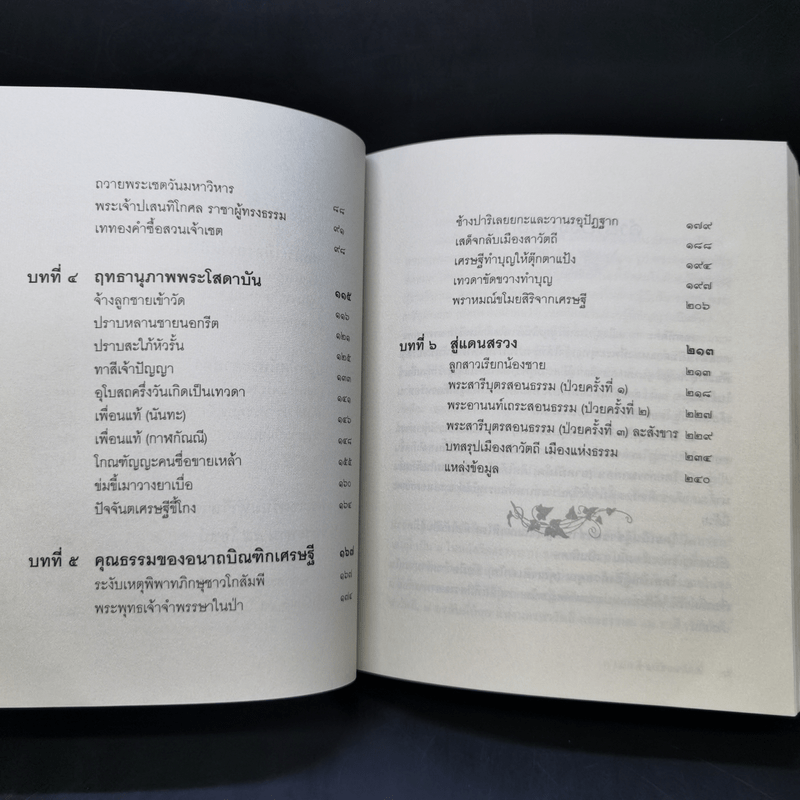 ถวายพระเชตวันมหาวิหาร ๘๘
พระเจ้าปเสนทิโกศล ราชาผู้ทรงธรรม ๙๑
เททองคำซื้อสวนเจ้าเชต ๙๘
บทที่ ๔ ฤทธานุภาพพระโสดาบัน ๑๑๕
จ้างลูกชายเข้าวัด ๑๑๖
ปราบหลานชายนอกรีต ๑๒๑
ปราบสะใภ้หัวรั้น ๑๒๕
ทาสีเจ้าปัญญา ๑๓๓
อุโบสถครึ่งวันเกิดเป็นเทวดา ๑๔๑
เพื่อนแท้ (นันทะ) ๑๔๖
เพื่อนแท้ (กาฬกัณณี) ๑๔๘
โกณฑัญญะคนซื่อขายเหล้า ๑๕๕
ข่มขี้เมาวางยาเบื่อ ๑๖๐
ปัจจันตเศรษฐีขี้โกง ๑๖๔
บทที่ ๕ คุณธรรมของอนาถบิณฑิกเศรษฐี ๑๖๗
ระงับเหตุพิพาทภิกษุชาวโกสัมพี ๑๖๗
พระพุทธเจ้าจำพรรษาในป่า ๑๗๔
ช้างปาริเลยยกะและวานรอุปัฏฐาก ๑๗๙
เสด็จกลับเมืองสาวัตถี ๑๘๘
เศรษฐีทำบุญให้ตุ๊กตาแป้ง ๑๙๔
เทวดาขัดขวางทำบุญ ๑๙๗
พราหมณ์ขโมยสิริจากเศรษฐี ๒๐๖
บทที่ ๖ สู่แดนสรวง ๒๑๓
ลูกสาวเรียกน้องชาย ๒๑๓
พระสารีบุตรสอนธรรม (ป่วยครั้งที่ ๑) ๒๑๘
พระอานนท์เถระสอนธรรม (ป่วยครั้งที่ ๒) ๒๒๗
พระสารีบุตรสอนธรรม (ป่วยครั้งที่ ๓) ละสังขาร ๒๒๙
บทสรุปเมืองสาวัตถี เมืองแห่งธรรม ๒๓๔
แหล่งข้อมูล ๒๔๐